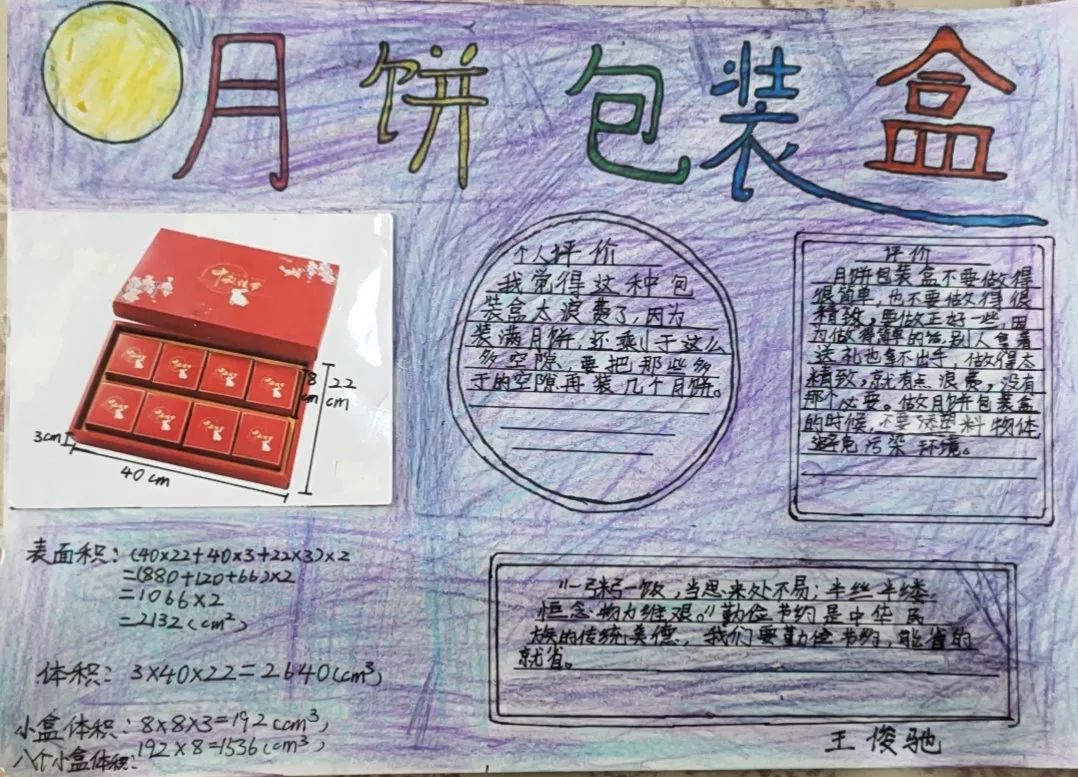 月饼包装盒
8cm
22cm
3cm
40cm
个人评价
我觉得这种包
装盒太浪费了,因为
装满月饼,还乘小于这么
多空隙,要把那些多
于的空隙再装几个月饼。
评价
月饼包装盒不要做得
很简单,也不要做得很
精致,要做正好一些,因
为做得简单的话,别人拿着
送礼也拿不出手,做得太
精致,就有点浪费,没有
那个必要。做月饼包装盒
的时候,不要添塑料物体
避免污染环境。
表面积:(40×22+40×3+22×3)×2
=(880+120+66)×2
=1066×2
=2132(cm²)
体积:3×40×22=2640(cm³)
小盒体积:8×8×3=192(cm³)
八个小盒体积:192×8=1536(cm³)
“一粥一饭,当思来处不易;半丝半缕,
恒念物力维艰。”勤俭节约是中华民
族的传统美德,我们要勤俭节约,能省的
就省。
王俊驰